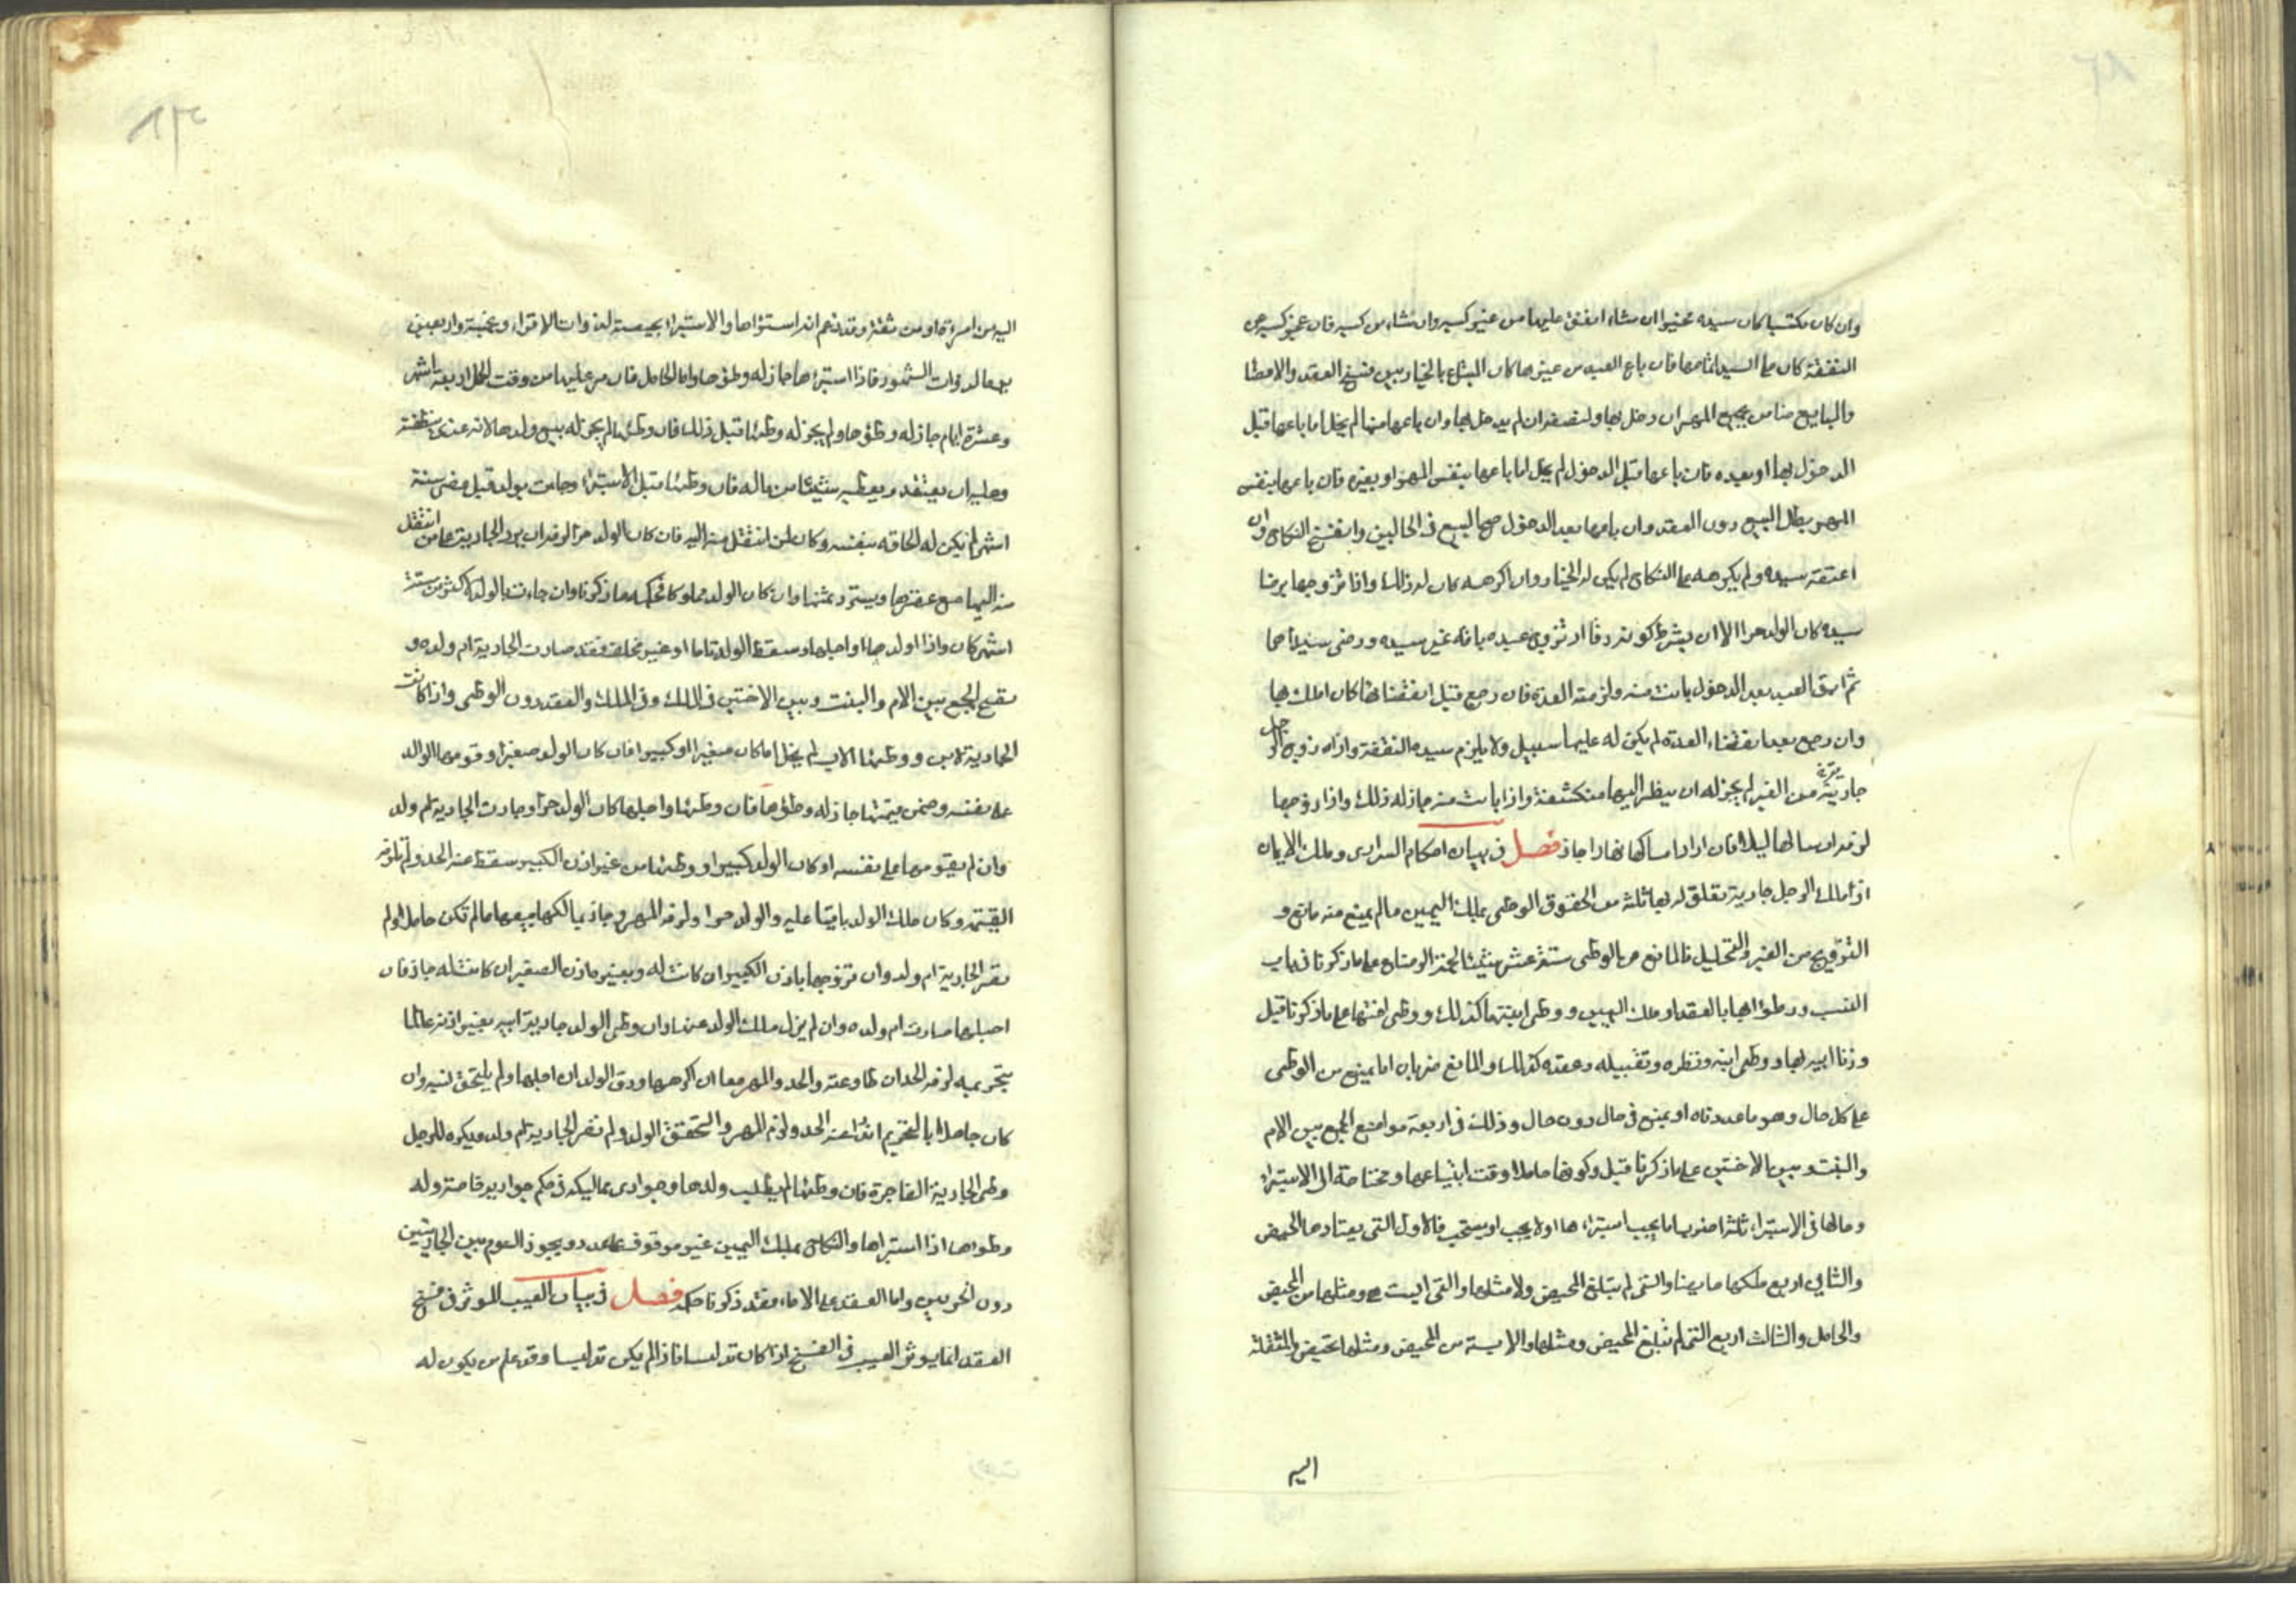 وان كان مكتسبا كان سيده مخيرا ان شاء انفق عليها من غير كسبه وان شاء من كسبه فان عجز كسبه عن
النفقة كان على السيد اتمامها فان باع العبد من غيرها كان المبتاع بالخيار بين فسخ العقد والامضا
والبايع ضامن جميع المهر ان دخل بها ولنصفه ان لم يدخل بها وان باعه منها لم يخل اما باعها قبل
الدخول بها او بعده فان باعها قبل الدخول لم يخل اما باعها بنفس المهر او بغيره فان باعها بنفس
المهر بطل البيع دون العقد وان باعها بعد الدخول صح البيع في الحالين وانفسخ النكاح وان
اعتقه سيده ولم يكرهه على النكاح لم يكن له الخيار وان اكرهه كان له ذلك واذا تزوجها برضا
سيده كان الولد حرا الا ان يشرط كونه رقا او تزوج عبده بامة غير سيده ورضى سيداهما
ثم ابق العبد بعد الدخول بانت منه ولزمته العدة فان رجع قبل انقضائها كان املك بها
وان رجع بعد انقضاء العدة لم يكن له عليها سبيل ولا يلزم سيده النفقة واذا زوج الرجل
جاريته من الغير لم يجز له ان ينظر اليها منكشفة واذا بانت منه جاز له ذلك واذا زوجها
لزمه ارسالها ليلا فان اراد امساكها نهارا جاز فصل في بيان احكام السراري وملك الايمان
اذا ملك الرجل جارية تعلق له بها ثلثة من الحقوق الوطى بملك اليمين مالم يمنع منه مانع و
التزويج من الغير والتحليل فالمانع من الوطى ستة عشر شيئا لحمة الرضاع على ما ذكرنا في باب
النسب ووطؤ امها بالعقد او ملك اليمين ووطى ابنتها كذلك ووطى اختها على ما ذكرنا قبل
وزنا ابيه بها ووطى ابنه ونظره وتقبيله وعقده كذلك والمانع ضربان اما يمنع من الوطى
على كل حال وهو ما عددناه او يمنع في حال دون حال وذلك في اربعة مواضع الجمع بين الام
والبنت وبين الاختين على ما ذكرنا قبل وكونها حاملا وقت ابتياعها ومحتاجة الى الاستبراء
وحالها في الاستبراء ثلثة اضرب اما يجب استبراءها او لا يجب او يستحب فالاول التي يعتادها الحيض
والثاني اربع ملكها حايضا والتى لم تبلغ المحيض ولا مثلها والتى ايست ومثلها من المحيض
والحامل والثالث اربع التى لم تبلغ المحيض ومثلها والايسة من المحيض ومثلها تحيض والمنتقلة
اليه
اليه من امرءة او من ثقة وقد زعم انه استبراها والاستبراء بحيضة لذوات الاقراء وبخمسة واربعين
يوما لذوات الشهور فاذا استبرءها جاز له وطؤها واما الحامل فان مر عليها من وقت الحمل اربعة اشهر
وعشرة ايام جاز له وطؤها ولم يجز له وطئها قبل ذلك فان وطئها لم يجز له بيع ولدها لانه غذى بنطفته
وعليه ان يعتقه ويعطيه شيئا من ماله فان وطئها قبل الاستبراء وجاءت بولد قبل مضى ستة
اشهر لم يكن له الحاقه بنفسه وكان لمن انتقل منه اليه فان كان الولد حرا لزمه ان يرد الجارية على من انتقل
منه اليها مع عقرها ويسترد ثمنها وان كان الولد مملوكا فحكمه ما ذكرنا وان جاءت بالولد لاكثر من ستة
اشهر كان واذا اولدها او احبلها وسقط الولد تاما او غير مخلقة فقد صارت الجارية ام ولده و
يصح الجمع بين الام والبنت وبين الاختين في الملك وفي الملك والعقد دون الوطى واذا كانت
الجارية لابن ووطئها الاب لم يخل اما كان صغيرا او كبيرا فان كان الولد صغيرا وقومها الوالد
على نفسه وضمن قيمتها جاز له وطؤها فان وطئها واحبلها كان الولد حرا وصارت الجارية ام ولد
وان لم يقومها على نفسه او كان الولد كبيرا ووطئها من غير اذن الكبير سقط عنه الحد ولم تلزمه
القيمة وكان ملك الولد باقيا عليه والولد حرا ولزمه المهر وجاز لمالكها بيعها مالم تكن حاملا ولم
تصر الجارية ام ولد وان تزوجها باذن الكبير ان كانت له وبغير اذن الصغير ان كانت له جاز فان
احبلها صارت ام ولده وان لم يزل ملك الولد عنها وان وطى الولد جارية ابيه بغير اذنه عالما
بتحريمه لزمه الحد ان طاوعته والحد والمهر معا ان اكرهها ورق الولد ان احبلها ولم يلتحق نسبه وان
كان جاهلا بالتحريم اندرا عنه الحد ولزم المهر والتحقق الولد ولم تصر الجارية ام ولد ويكره للرجل
وطى الجارية الفاجرة فان وطئها لم يطلب ولدها وجوارى مماليكه في حكم جواريه خاصة وله
وطؤها اذا استبراها والنكاح بملك اليمين غير موقوف على عدد ويجوز النوم بين الجاريتين
دون الحرتين واما العقد على الاماء فقد ذكرنا حكمه فصل في بيان العيب الموثر في فسخ
العقد انما يوثر العيب في الفسخ اذا كان تدليسا فاذا لم يكن تدليسا وقد علم من يكون له